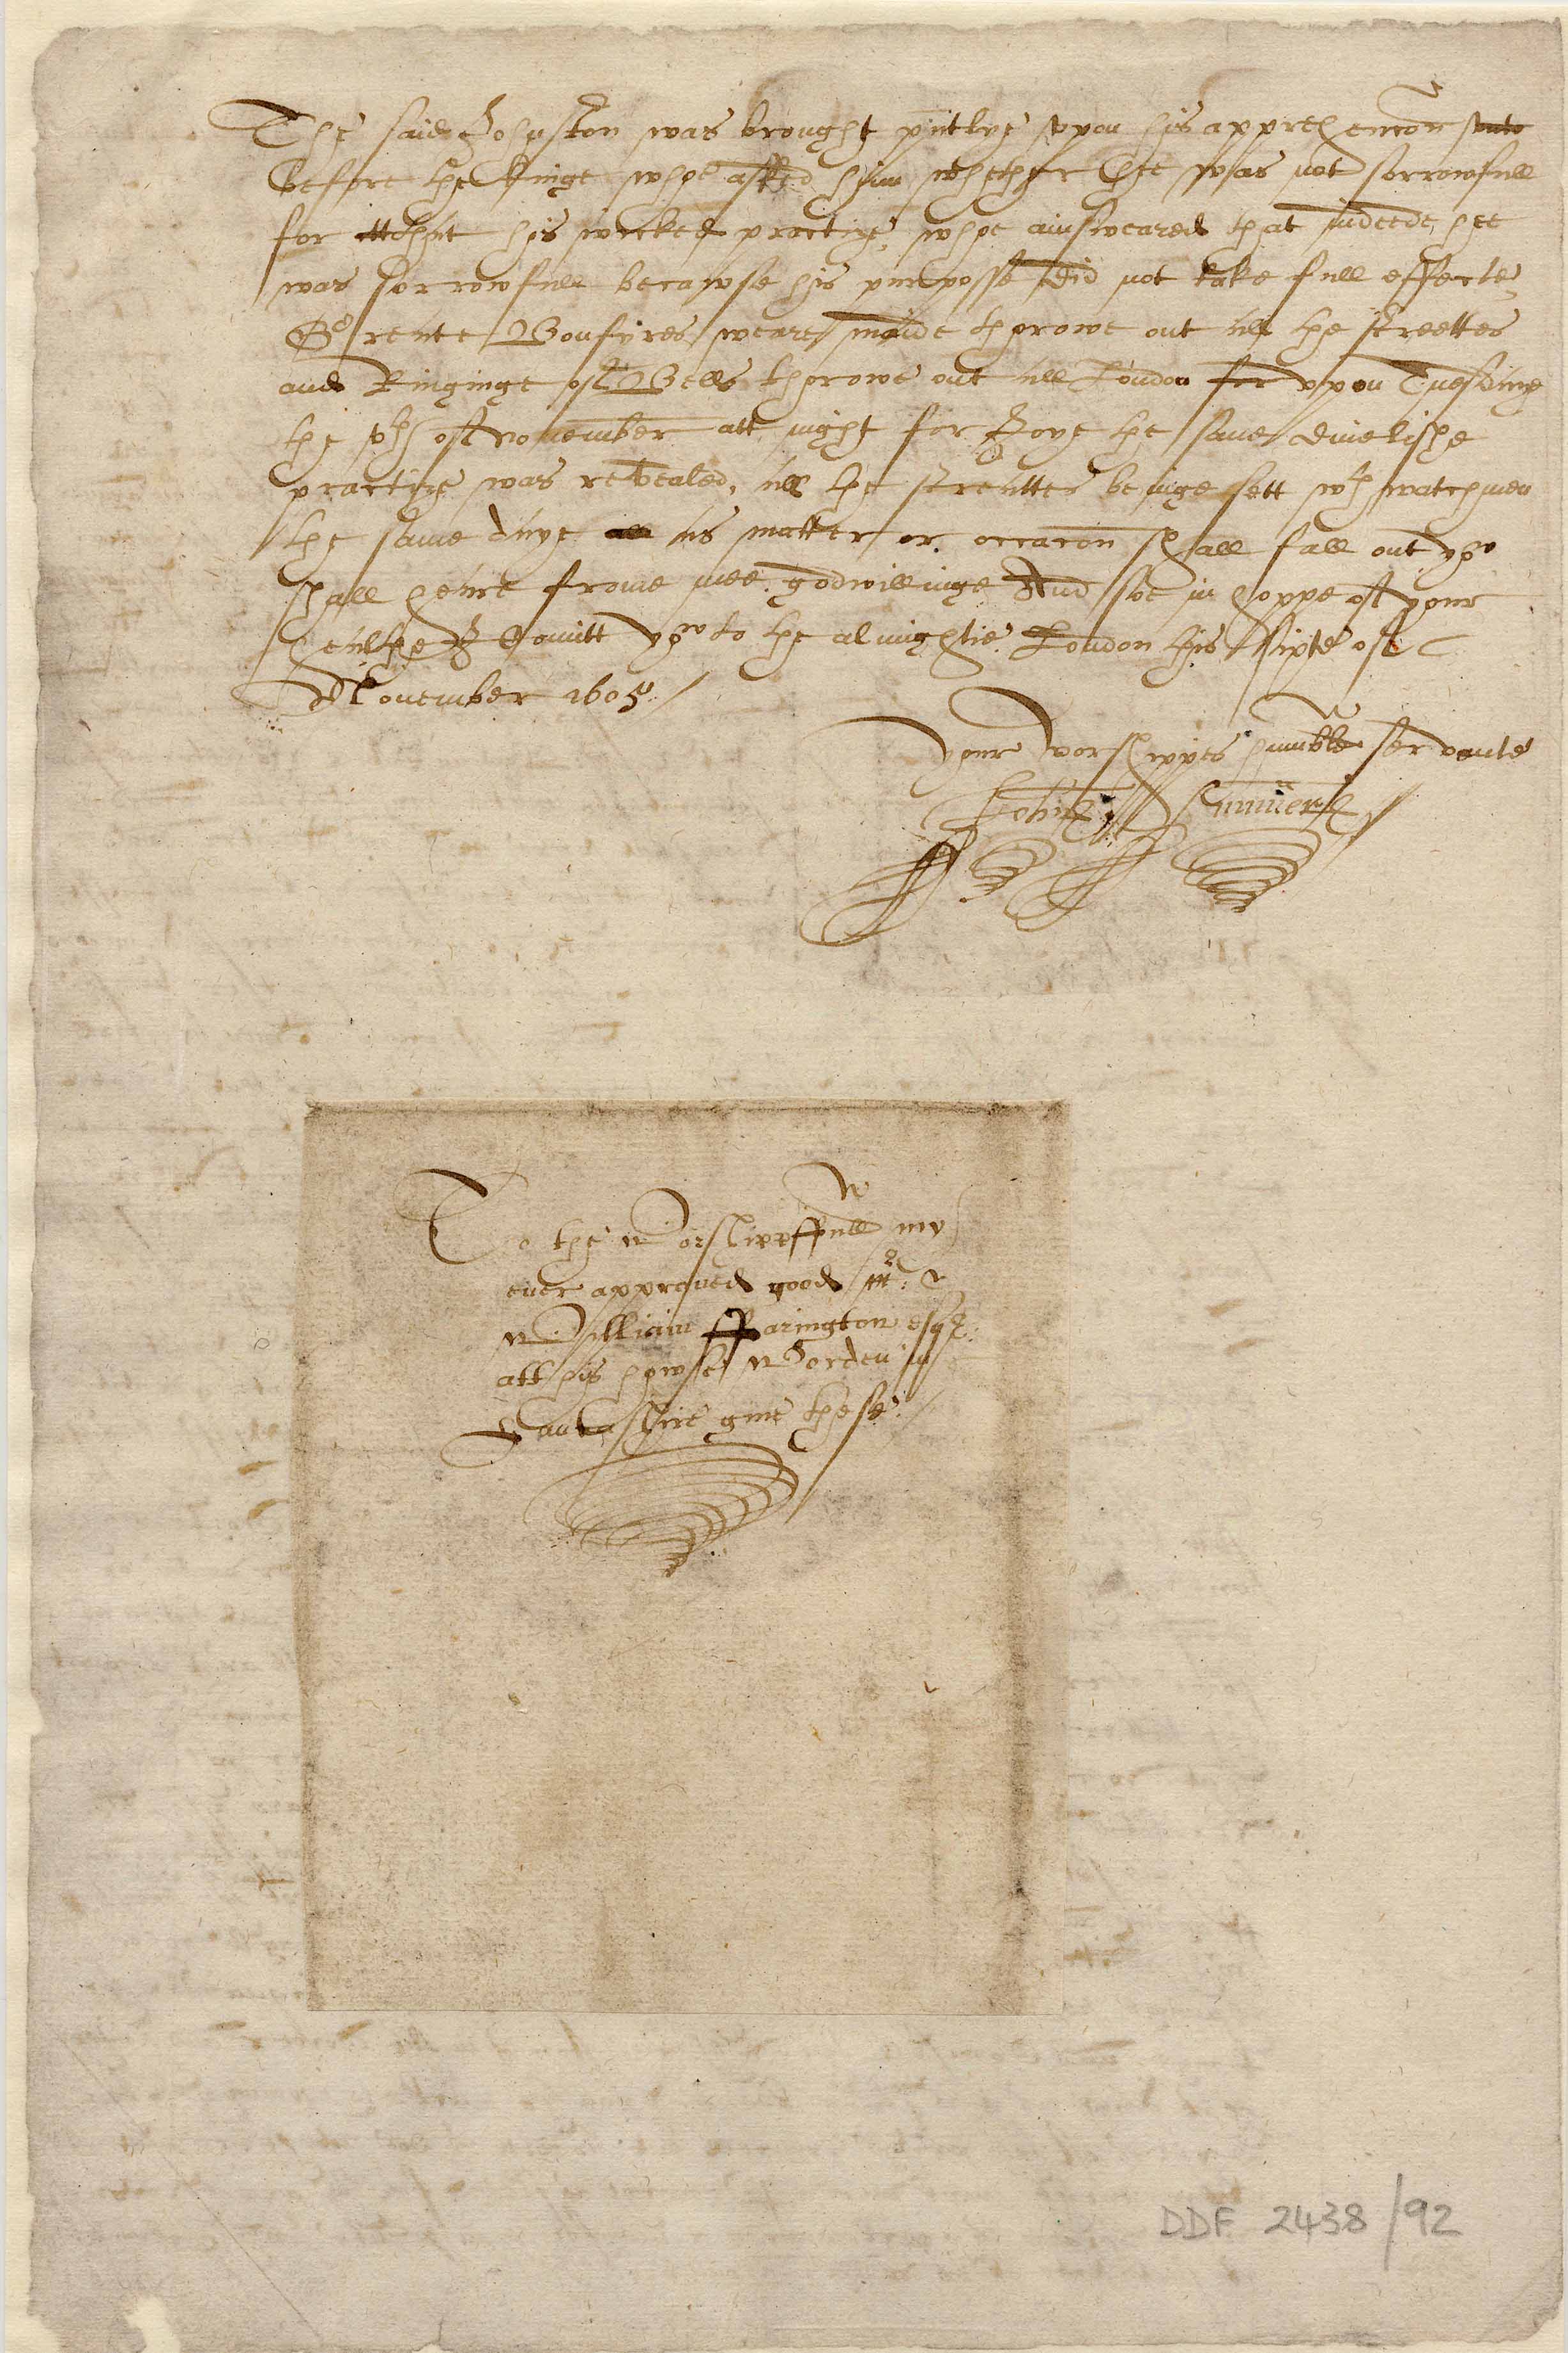 The said Johnston was brought pntlye vpon his apprehencon
before the Kinge whoe asked him whether hee was not sorrowfull
for his wicked practize, whoe ainsweared that indeede, hee
was sorrowfull becawse his purposse did not take full effecte,
Greate Bonfyres weare maide thorowe out all the streettes
and Ringinge of Bells thorowe out all London for vpon Tuesdaye
the vth of november att night for Joye the same divelishe
practize was revealed, all the streattes beinge sett wth watchmen
the same daye as matter or occacon shall fall out you
shall heare frome mee godwillinge And soe in hoppe of your
healthe I Comitt you to the almightie. London this sixte of
November 1605./
Your worshippes humble servante
To the worshippffull my
ever approved good mr:
William ffarington esqr:
att his howse Worden in
Lancashire give these./
DDF 2438/92